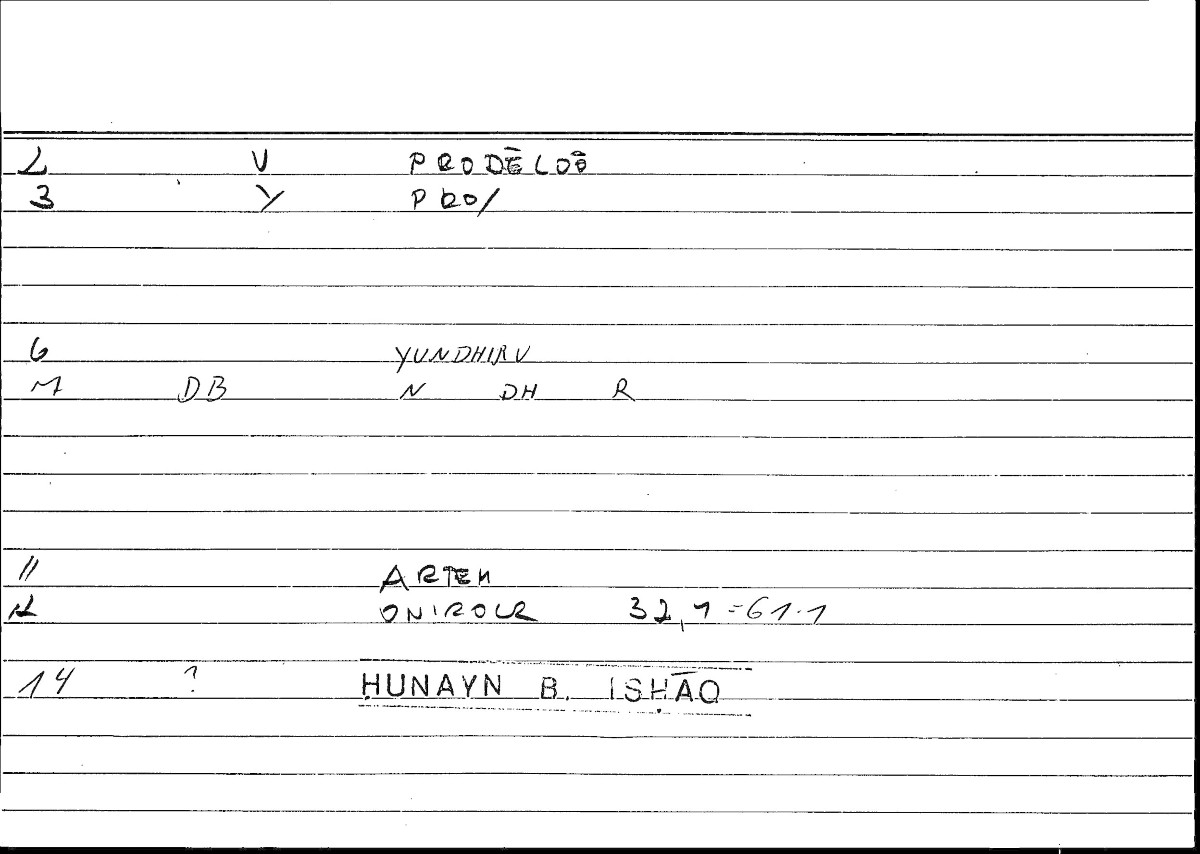 2 V PRODĒLOŌ
3 Y PRO/
6 YUNDHIRU
M DB N DH R
11 ARTEM
12 ONIROCR 32,1=61.1
14 ? ḤUNAYN B. ISḤĀQ